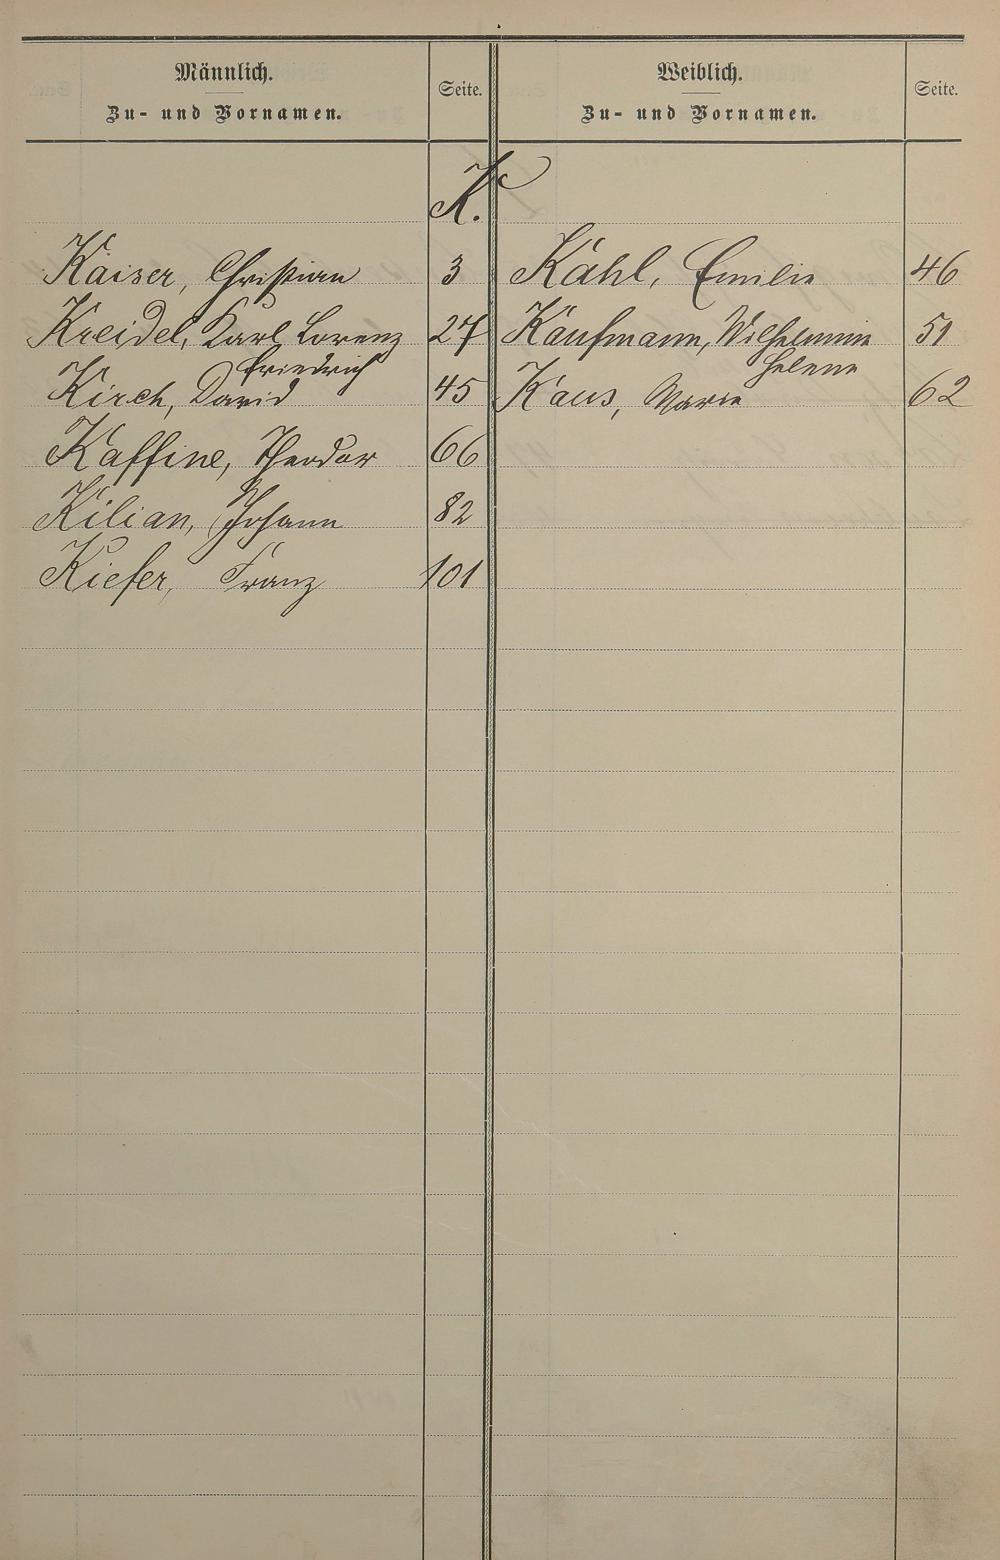 Männlich.
Zu- und Vornamen.
Seite.
Weiblich.
Zu- und Vornamen.
Seite.
K.
Kaiser, Christian 3
Kreidel, Karl Lorenz 27
Friedrich
Kirch, David 45
Kaffine, Theodor 66
Kilian, Johann 82
Kiefer, Franz 101
Kahl, Emilie 46
Kaufmann, Wilhelmine 51
Helene
Kaus, Marie 62